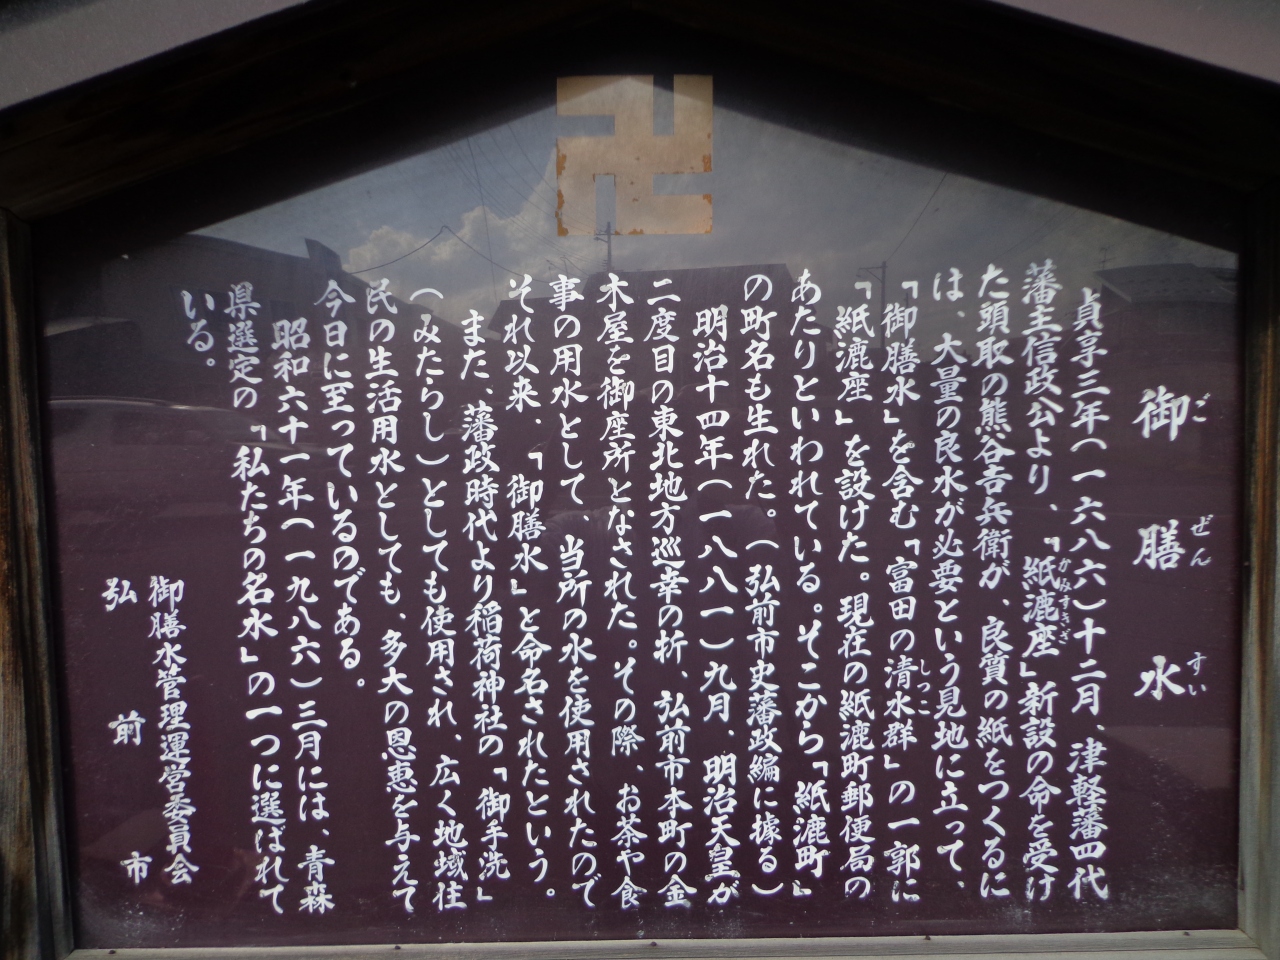 御膳水
ご ぜん すい
貞享三年(一六八六)十二月、津軽藩四代
藩主信政公より、「紙漉座」新設の命を受け
かみすきざ
た頭取の熊谷吉兵衛が、良質の紙をつくるに
は、大量の良水が必要という見地に立って、
「御膳水」を含む「富田の清水群」の一郭に
しつこ
「紙漉座」を設けた。現在の紙漉町郵便局の
あたりといわれている。そこから「紙漉町」
の町名も生れた。(弘前市史藩政編に據る)
明治十四年(一八八一)九月、明治天皇が
二度目の東北地方巡幸の折、弘前市本町の金
木屋を御座所となされた。その際、お茶や食
事の用水として、当所の水を使用されたので
それ以来、「御膳水」と命名されたという。
また、藩政時代より稲荷神社の「御手洗」
(みたらし)としても使用され、広く地域住
民の生活用水としても、多大の恩恵を与えて
今日に至っているのである。
昭和六十一年(一九八六)三月には、青森
県選定の「私たちの名水」の一つに選ばれて
いる。
御膳水管理運営委員会
弘前市